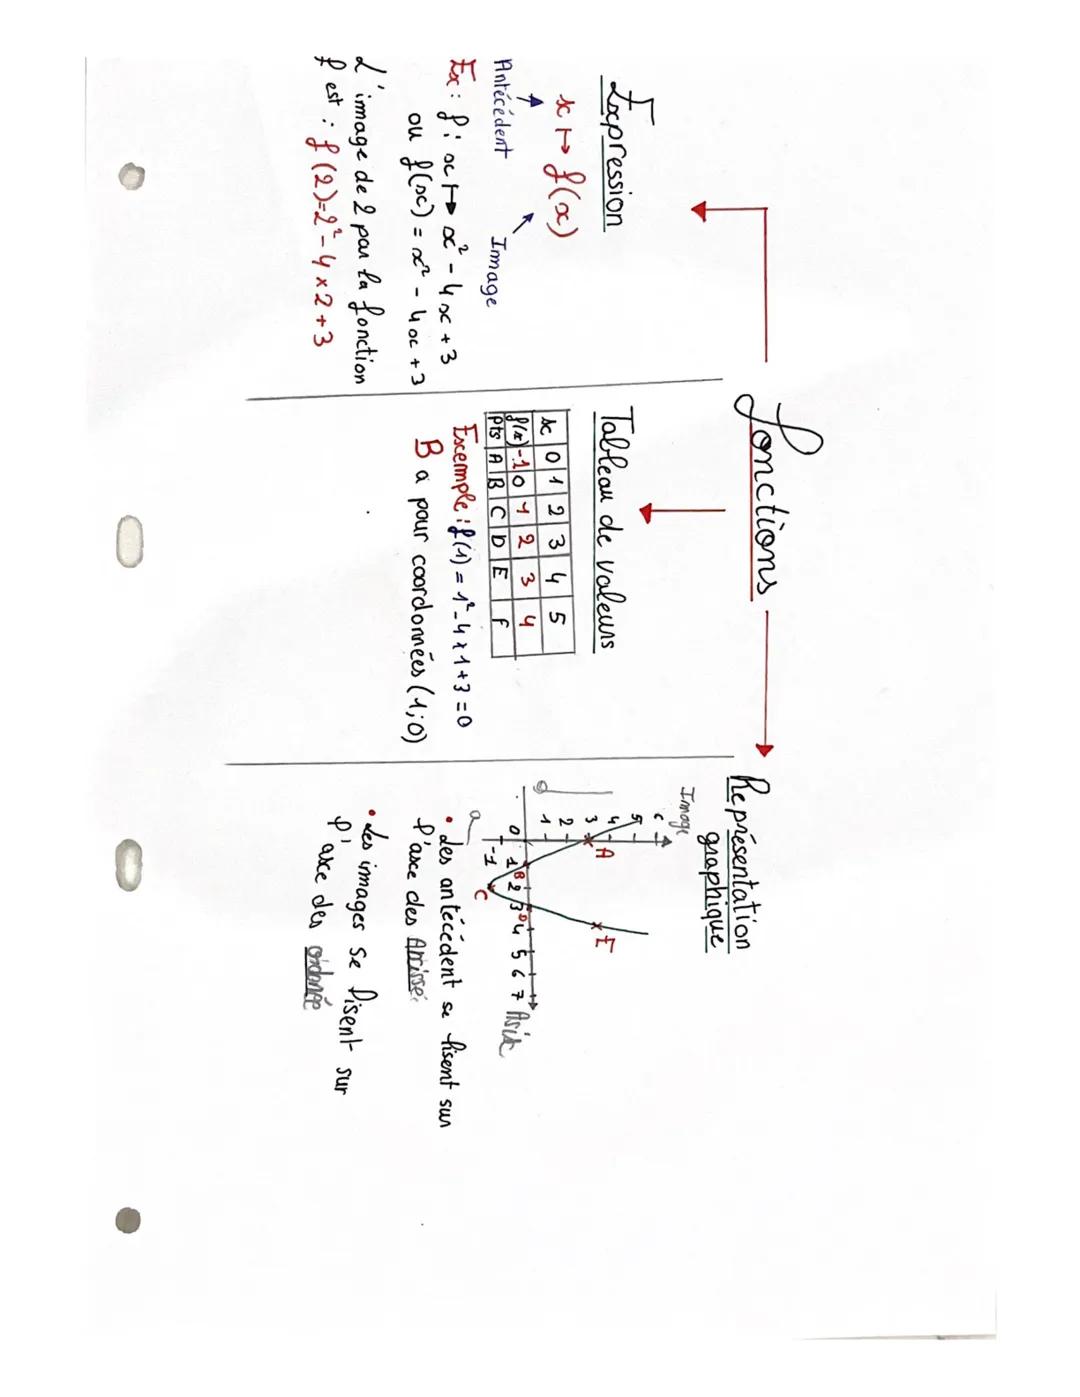 Fonctions
Expression
x ↦ f(x)
Antécédent
Image
Ex : f : x ↦ x² - 4x + 3
ou f(x) = x² - 4x + 3
L'image de 2 par la fonction
f est : f(2)=2² - 4 × 2 + 3
Tableau de valeurs
x 0 1 2 3 4 5
f(x) -1 0 1 2 3 4
Pts A B C D E F
Exemple : f(1) = 1² - 4 × 1 + 3 = 0
B a pour coordonnées (1;0)
Représentation
graphique
Image
5
4
3 A
2
1
0 1 B 2 3 D 4 5 6 7
-1 C
E
• Les antécédent se lisent sur
l'axe des
• Les images se lisent sur
l'axe des ordonnée